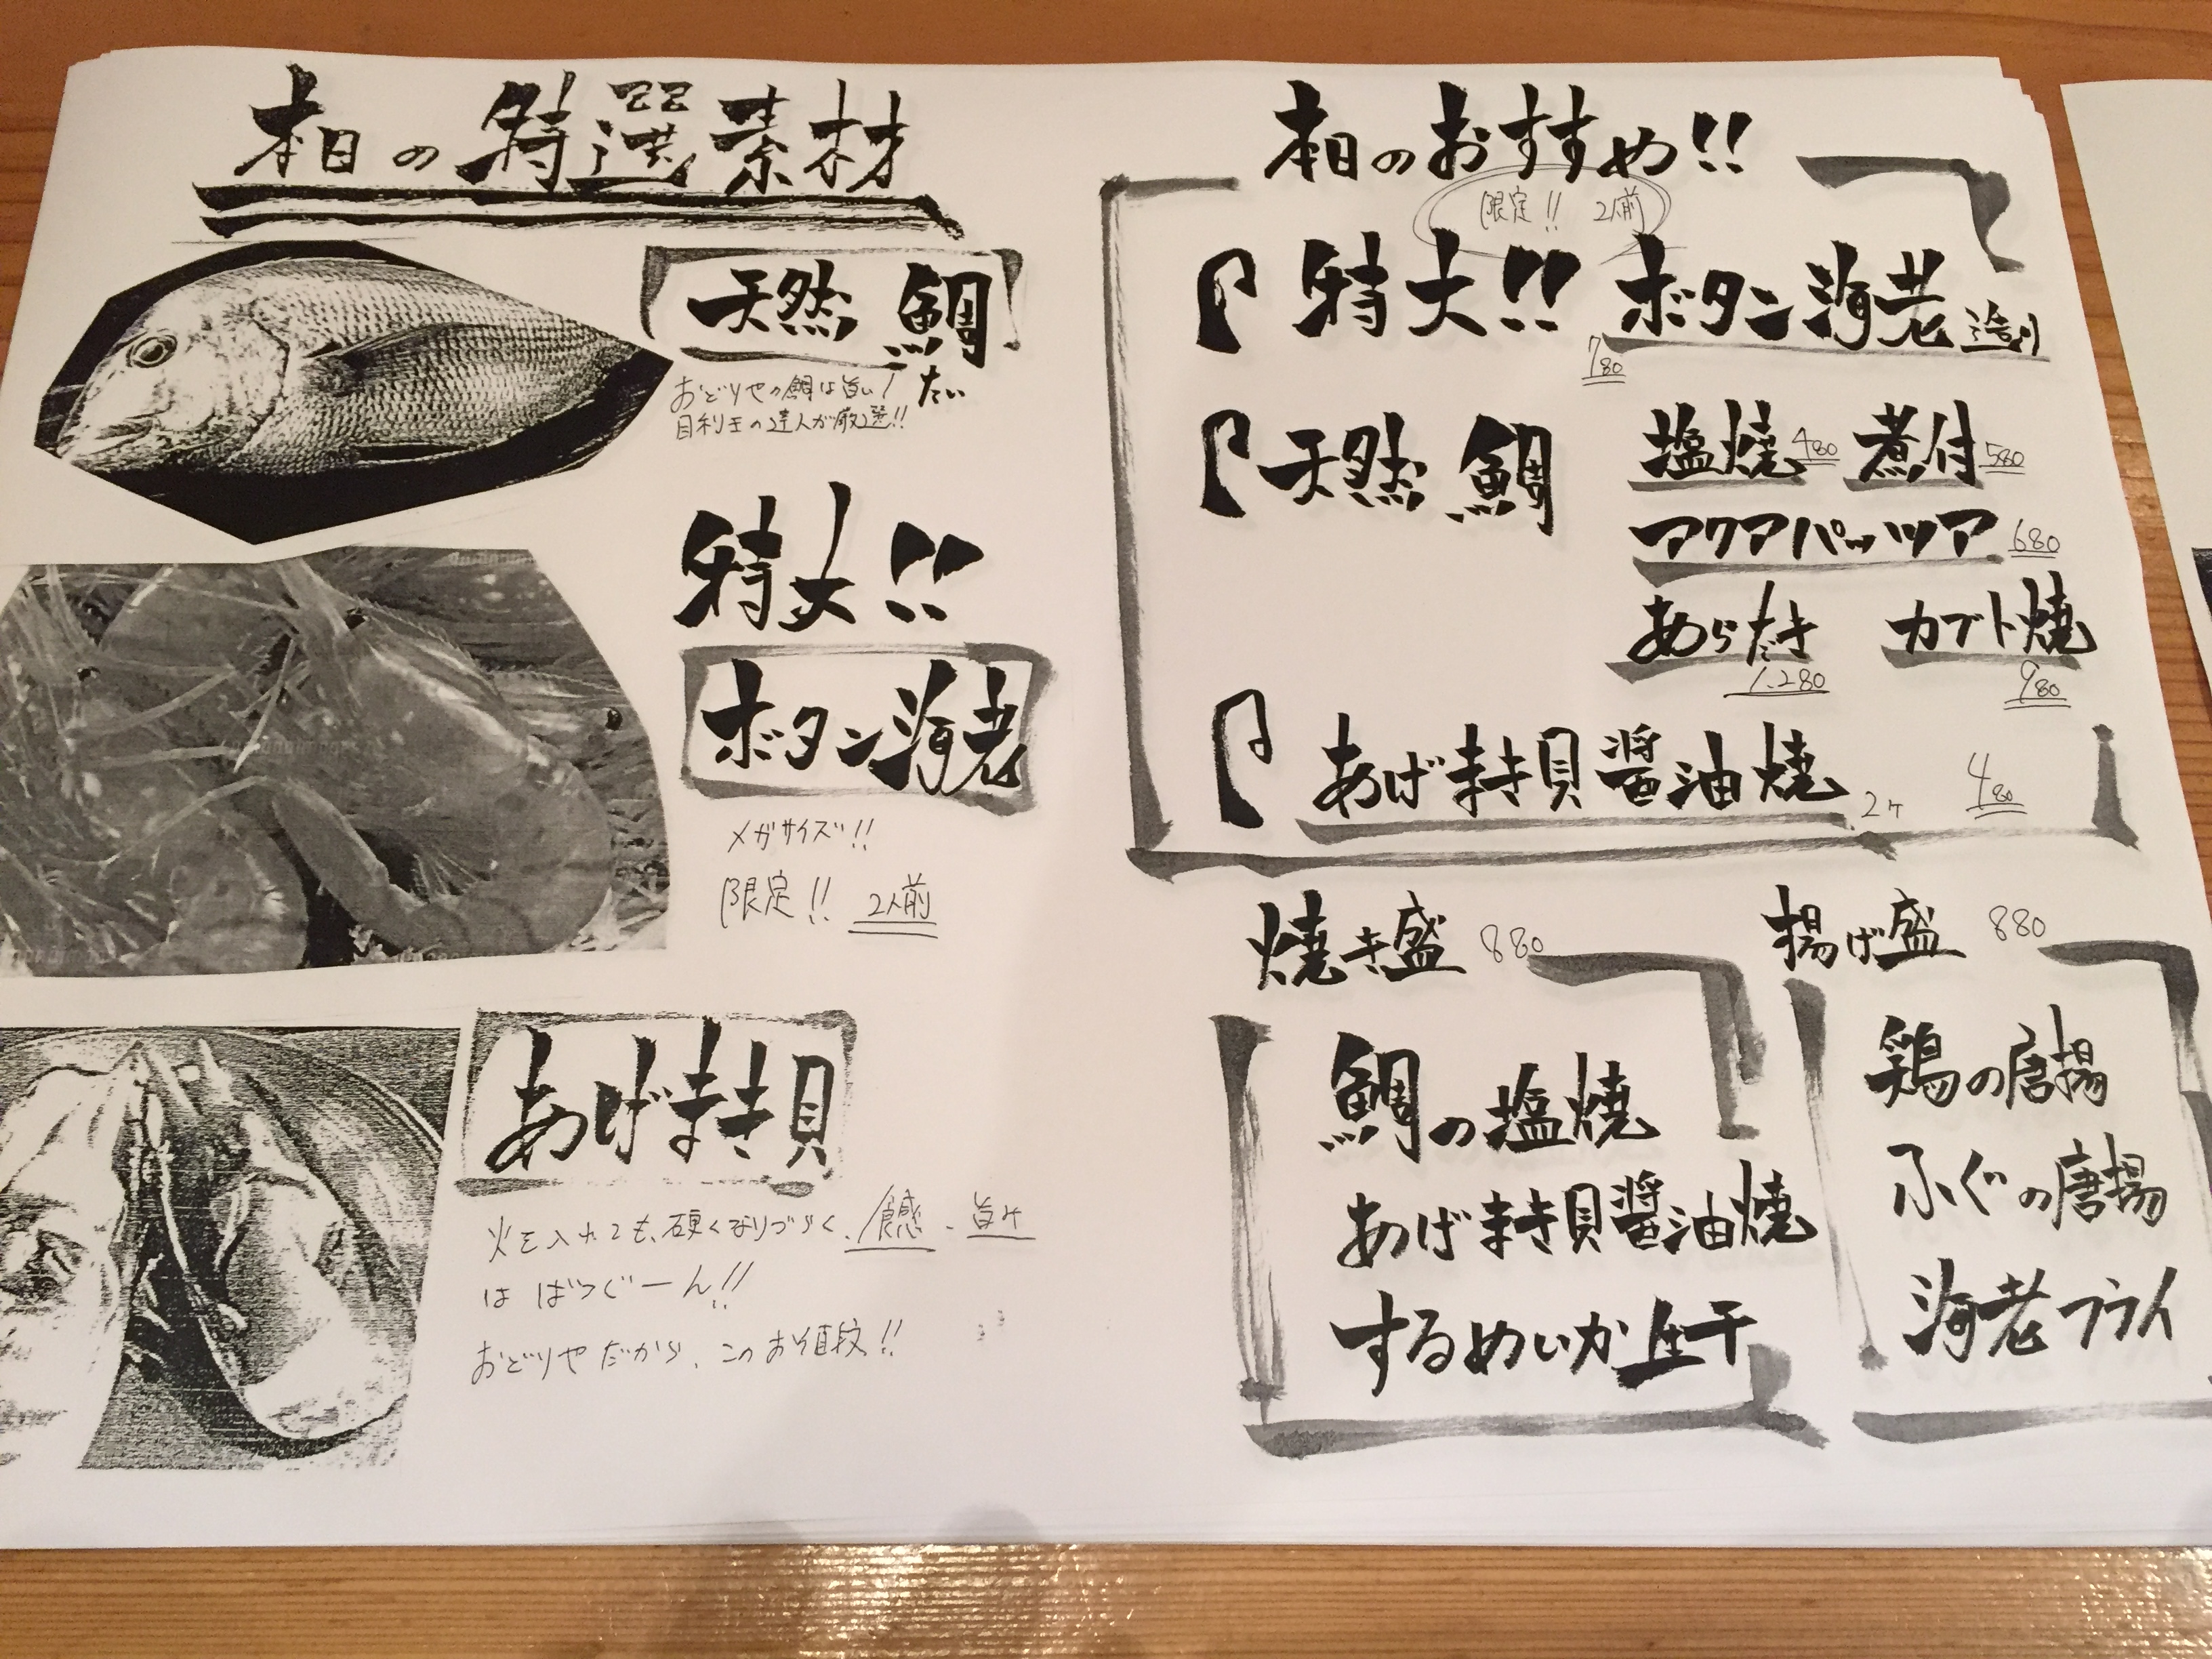 本日の特選素材
天然 鯛
たい
おどりやの鯛は旨い!
目利王の達人が厳選!!
特大!!
ボタン海老
メガサイズ!!
限定!! 2人前
あげまき貝
火を入れても、硬くなりづらく、食感、旨み
は ばつぐーん!!
おどりやだから、このお値段!!
本日のおすすめ!!
限定!! 2人前
特大!! ボタン海老 造り
780
天然 鯛 塩焼 480 煮付 580
アクアパッツア 680
あらだき カブト焼
1,280 980
あげまき貝醤油焼 2ヶ 480
焼き盛 880
鯛の塩焼
あげまき貝醤油焼
するめいか生干
揚げ盛 880
鶏の唐揚
ふぐの唐揚
海老フライ